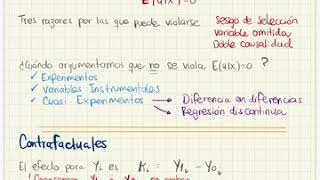 E(u|x)=0
Tres razones por las que puede violarse
Sesgo de Selección
Variable omitida
Doble causalidad
¿Cuándo argumentamos que no se viola E(u|x)=0 ?
✓ Experimentos
✓ Variables Instrumentales
✓ Cuasi-Experimentos → Diferencia en diferencias
→ Regresión discontinua
Contrafactuales
El efecto para Yi es Ki = Y1i - Y0i